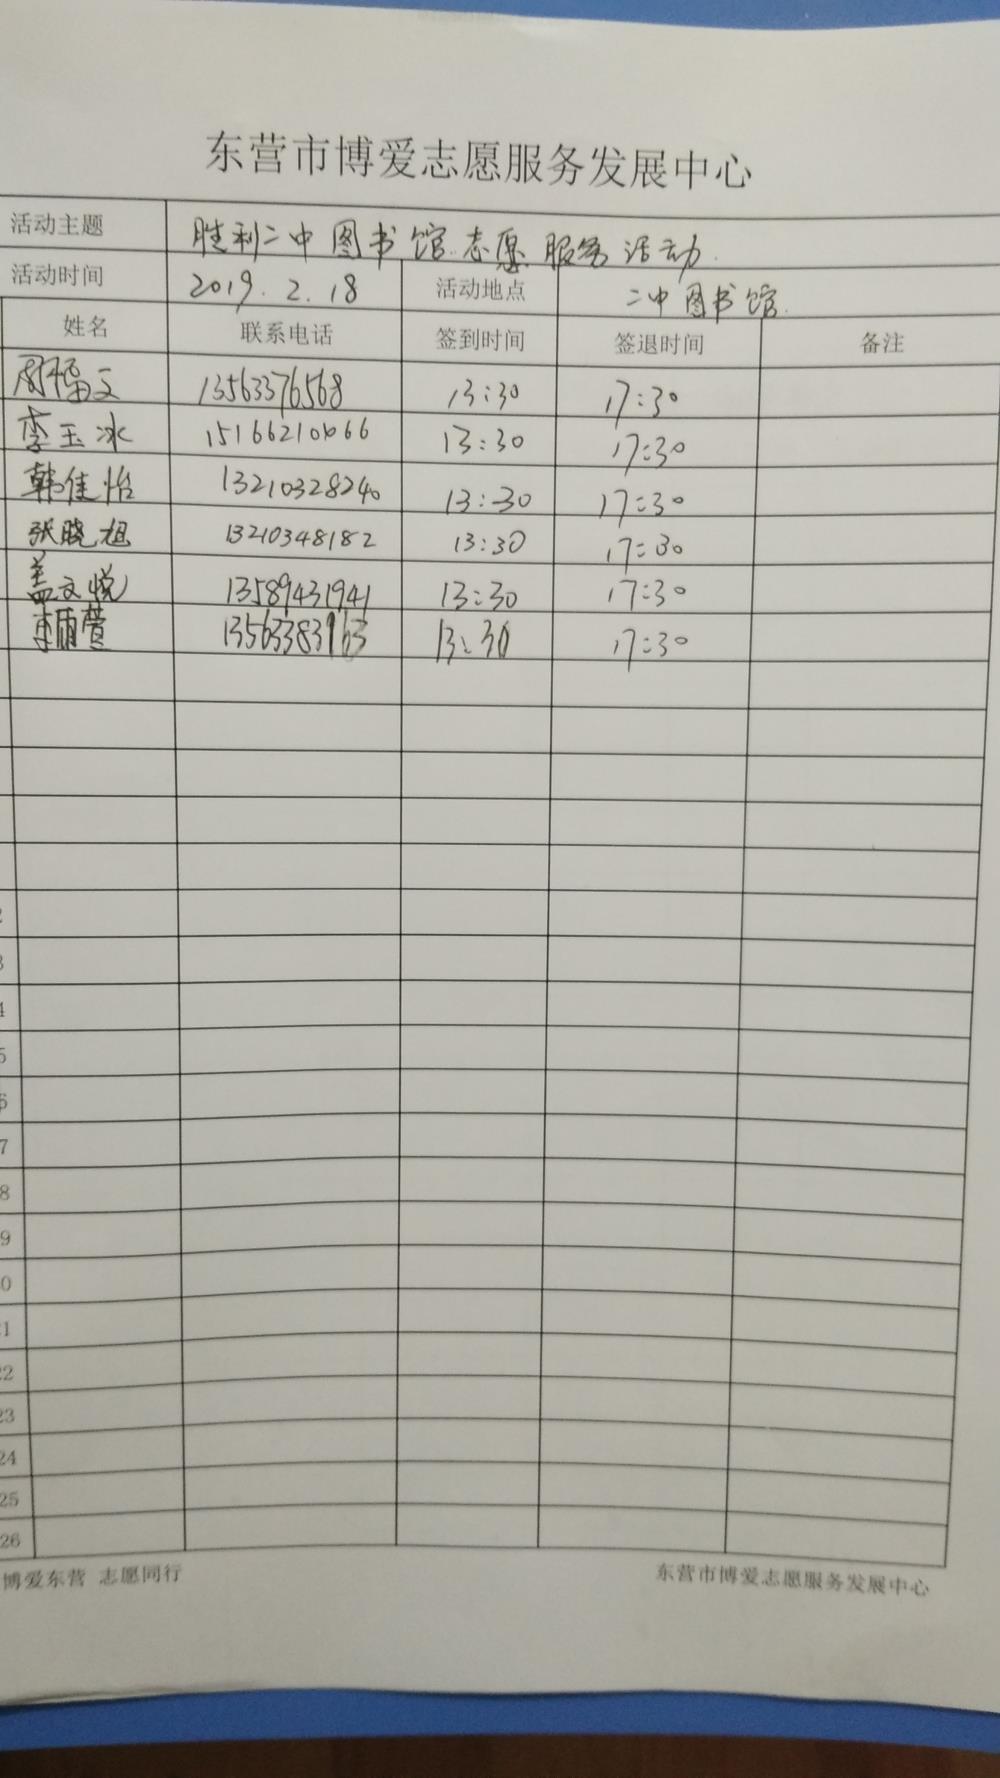 东营市博爱志愿服务发展中心
活动主题 胜利二中图书馆志愿服务活动.
活动时间 2019.2.18 活动地点 二中图书馆.
姓名 联系电话 签到时间 签退时间 备注
13563376568 13:30 17:30
李玉冰 13:30 17:30
韩佳怡 13210328240 13:30 17:30
张晓旭 13210348182 13:30 17:30
盖文悦 13589431941 13:30 17:30
13:30 17:30
2
3
4
5
6
7
8
9
0
21
22
23
24
25
26
博爱东营 志愿同行 东营市博爱志愿服务发展中心